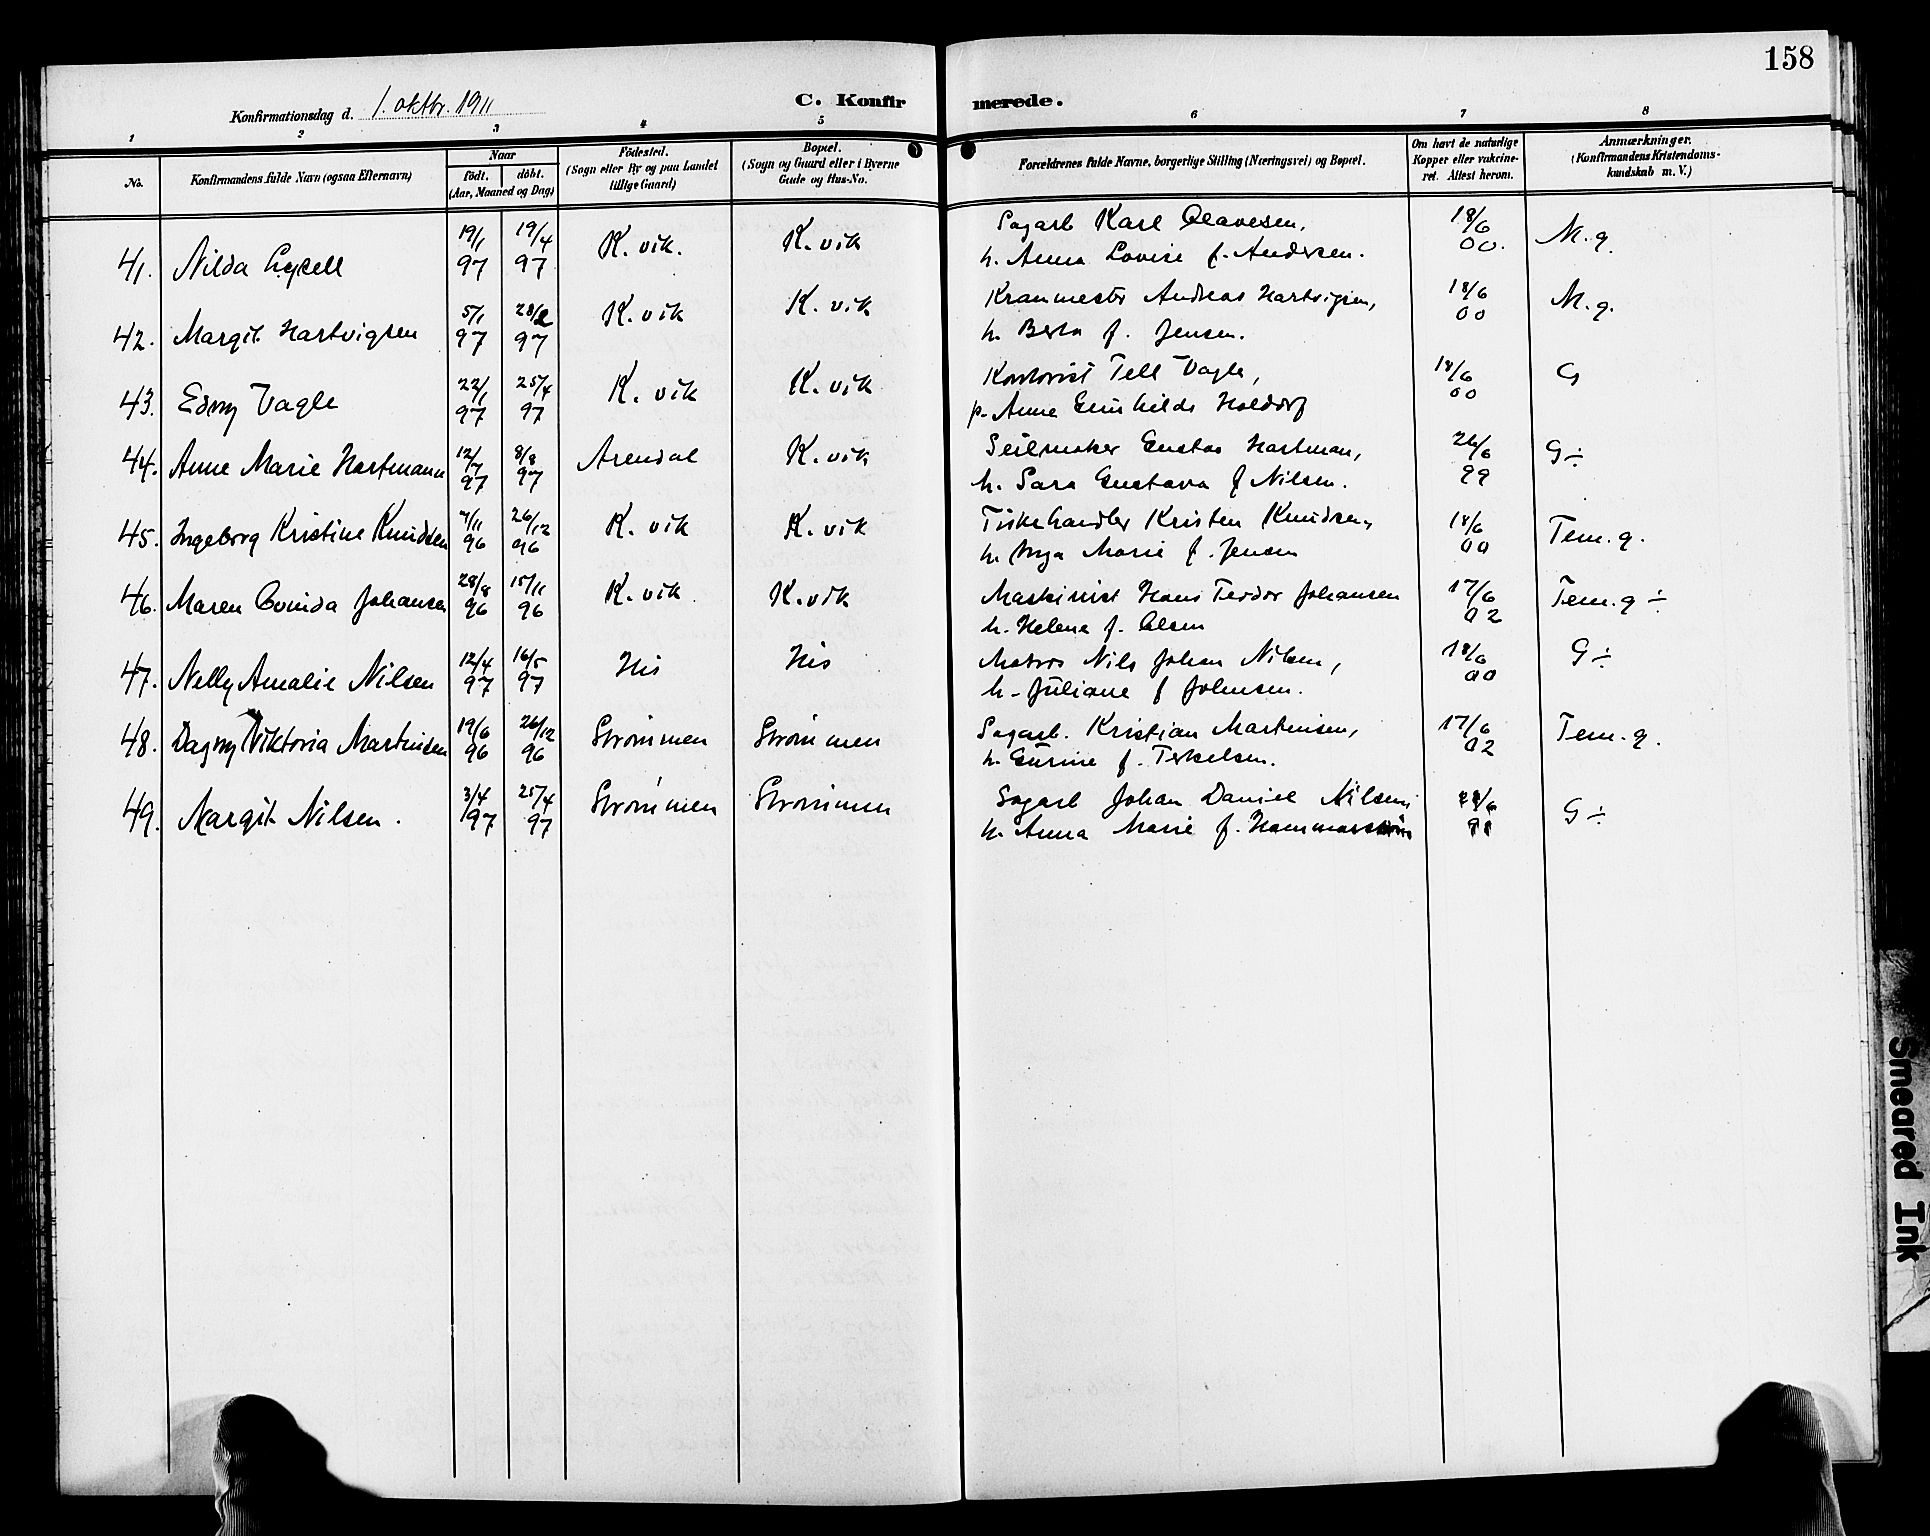 158
Konfirmationsdag d. 1. oktbr. 1911
C. Konfirmerede.
1 2 3 4 5 6 7 8
No.
Konfirmandens fulde Navn (ogsaa Efternavn)
Naar
født. døbt.
(Aar, Maaned og Dag)
Fødested.
(Sogn eller By og paa Landet
tillige Gaard)
Bopæl.
(Sogn og Gaard eller i Byerne
Gade og Hus-No.
Forældrenes fulde Navne, borgerlige Stilling (Næringsvei) og Bopæl.
Om havt de naturlige
Kopper eller vakcine-
ret. Attest herom.
Anmærkninger.
(Konfirmandens Kristendoms-
kundskab m. V.)
41. Nilda Lyxell 19/1 97 19/4 97 K. vik. K. vik Sagarb Karl Olavesen, 18/6 00. M. g.
h. Anna Lovise f. Andersen.
42. Margit Hartvigsen 5/1 97 28/2 97 K. vik K. vik Kranmester Andreas Hartvigsen, 18/6 00 M. g.
h. Berta f. Jensen.
43. Edny Vagle 22/1 97 25/4 97 K. vik K. vik Tell Vagle, 18/6 00 G
p. Anne Holdorf
44. Anne Marie Hartmann 12/7 97 8/8 97 Arendal K. vik Seilmaker Gustav Hartman, 26/6 99 G÷
h. Sara Gustava f Nilsen.
45. Ingeborg Kristine Knudsen 7/11 96 26/12 96 K. vik K. vik Fiskehandler Kristen Knudsen, 18/6 00 Tem. g.
h. Inga Marie f. Jensen
46. Maren Ovinda Johansen 28/8 96 15/11 96 K. vik K. vik Maskinist Hans Teodor Johansen 17/6 02 Tem. g ÷
h. Helene f. Olsen
47. Nelly Amalie Nilsen 12/4 97 16/5 97 His His Matros Nils Johan Nilsen, 18/6 00 G ÷
h. Juliane f Johnsen.
48. Dagny Viktoria Martinsen 19/6 96 26/12 96 Strømmen Strømmen Sagarb. Kristian Martinsen, 17/6 02 Tem. g.
h. Gurine f. Terkelsen.
49. Margit Nilsen. 3/4 97 25/4 97 Strømmen Strømmen Sagarb Johan Daniel Nilsen, G ÷
h. Anna Marie f. Hammarstrøm
Smeared Ink